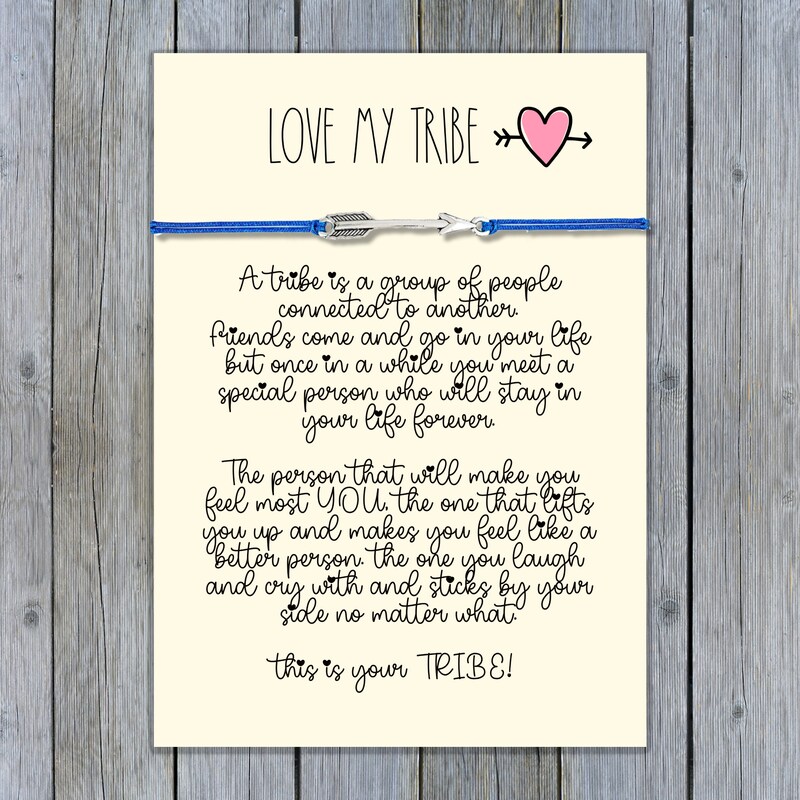 LOVE MY TRIBE
A tribe is a group of people
connected to another.
friends come and go in your life
but once in a while you meet a
special person who will stay in
your life forever.
The person that will make you
feel most YOU, the one that lifts
you up and makes you feel like a
better person. the one you laugh
and cry with and sticks by your
side no matter what.
this is your TRIBE!